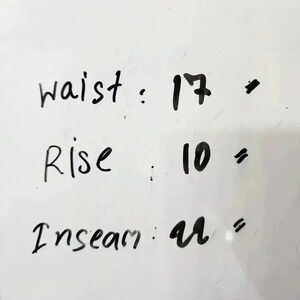 Waist : 17 "
Rise : 10 "
Inseam : 22 "